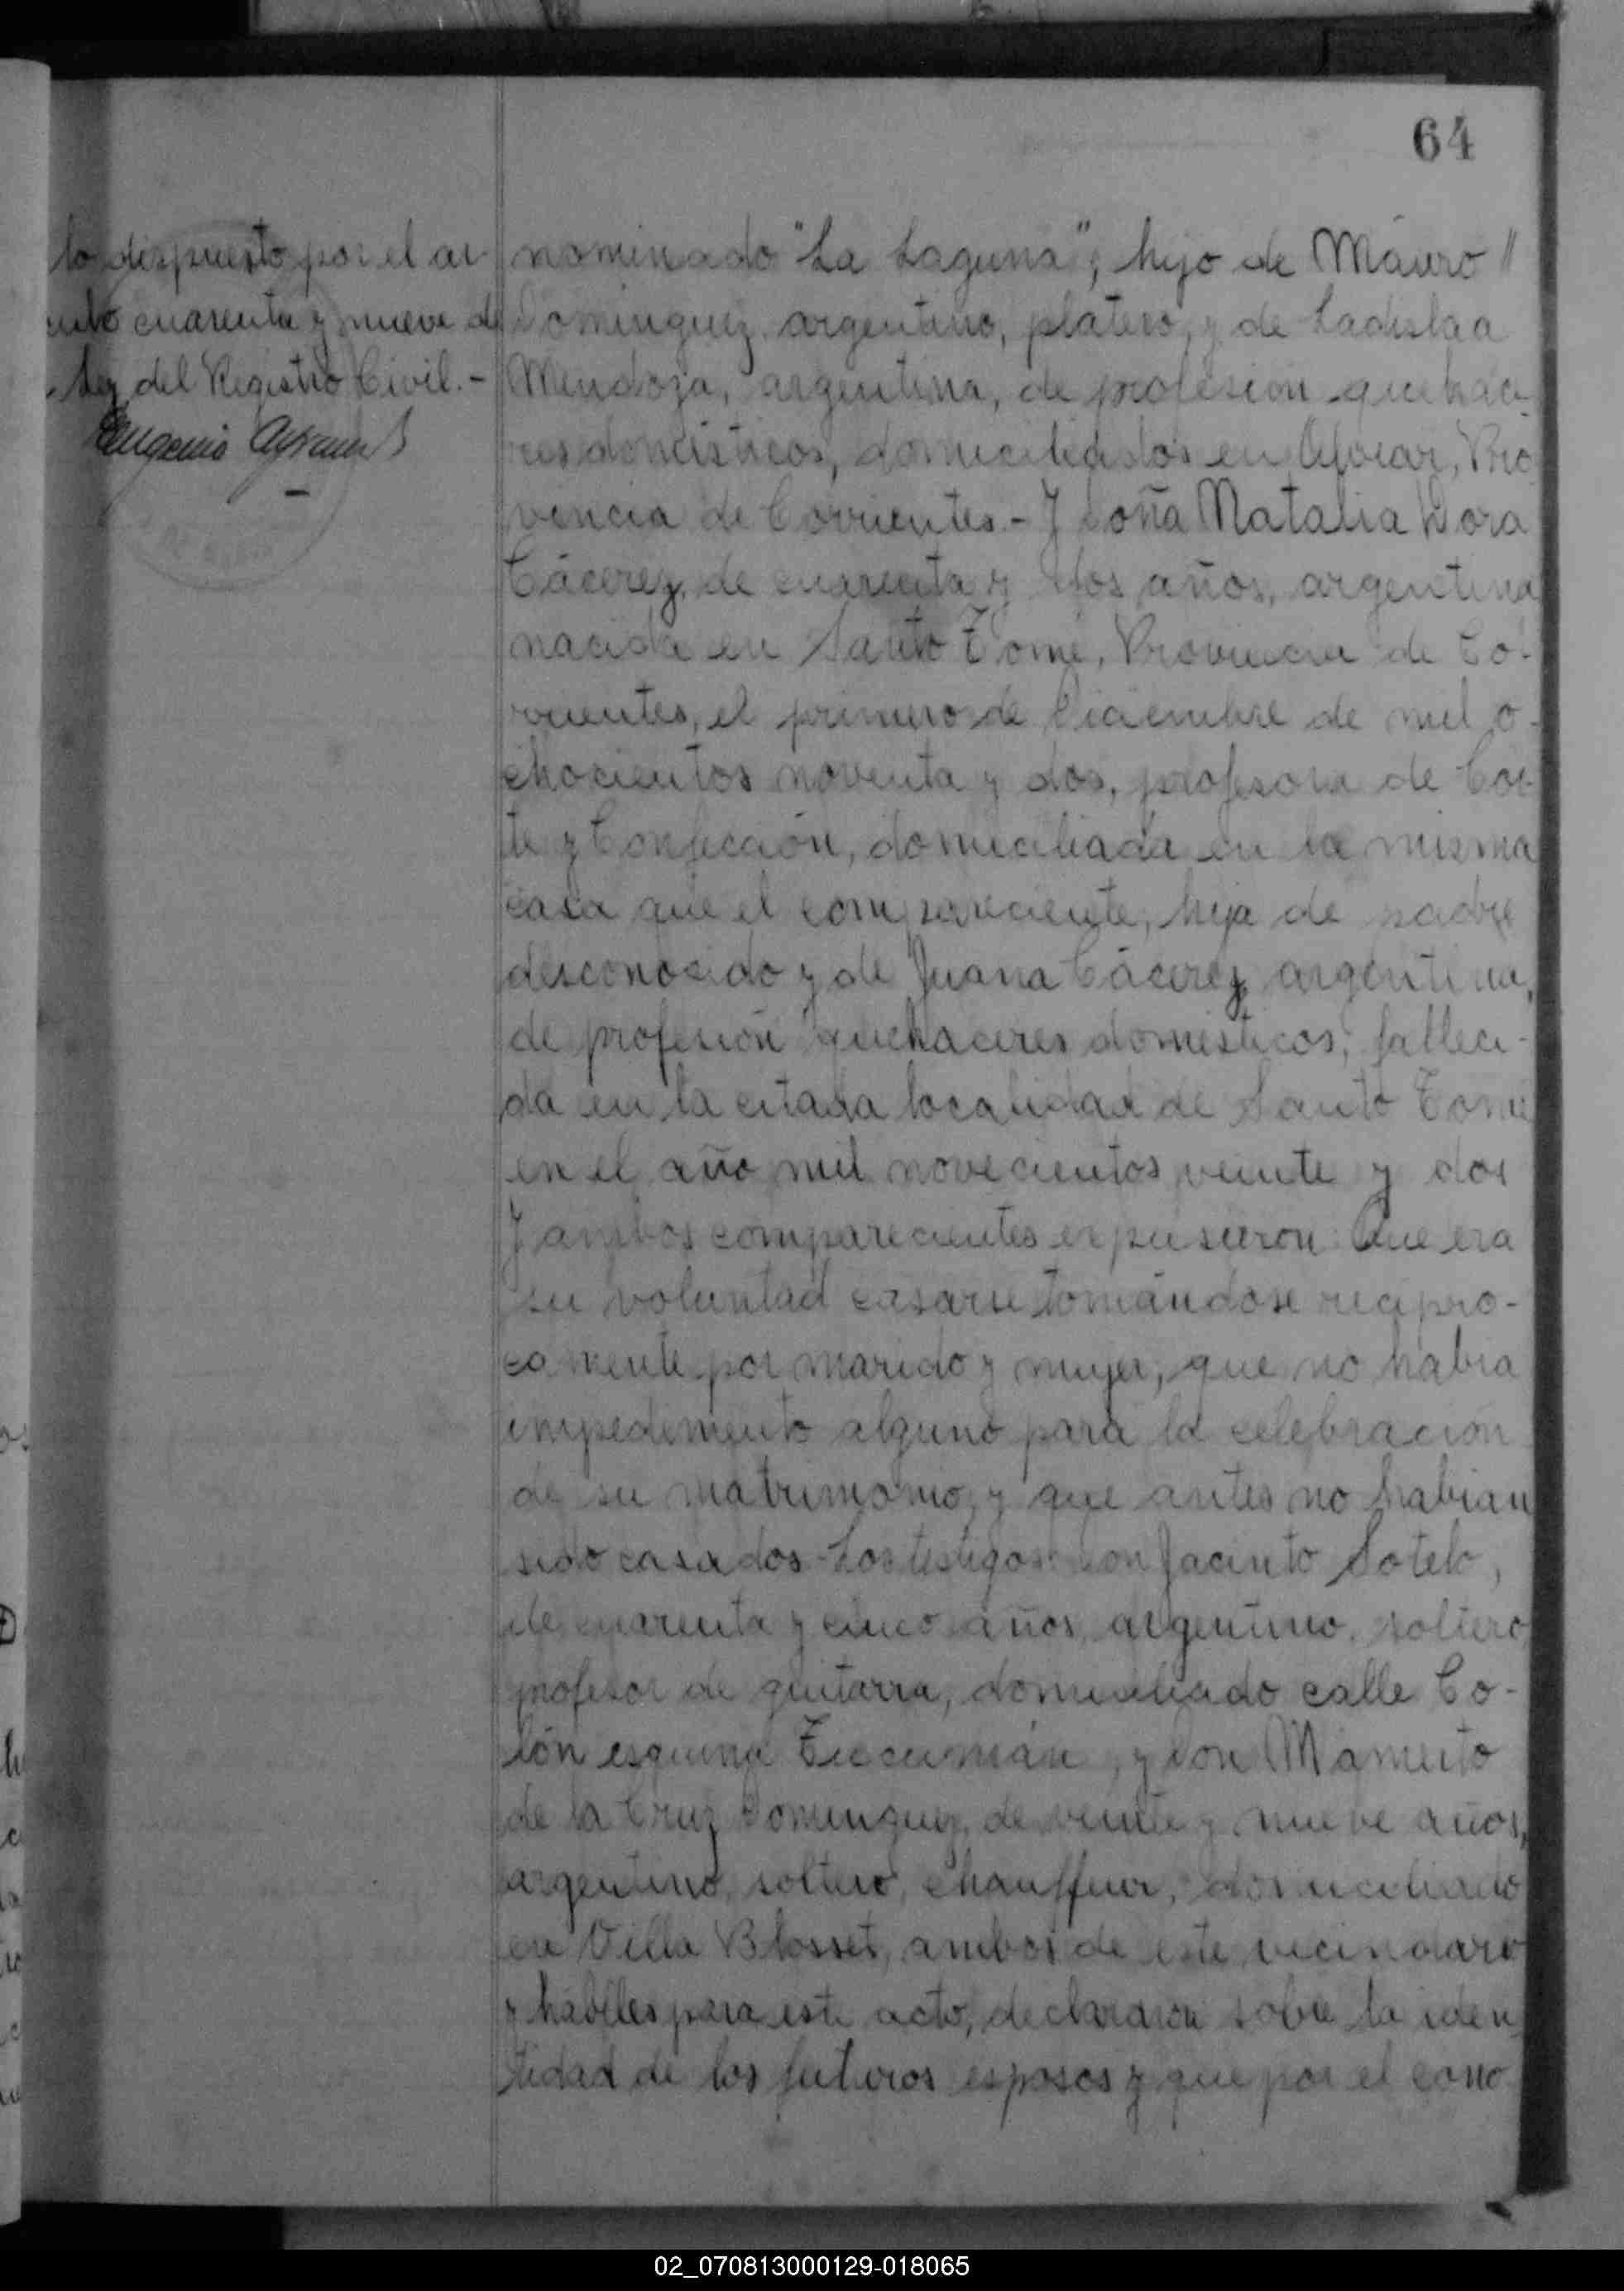 64
lo dispuesto por el ar-
culo cuarenta y nueve de
Ley del Registro Civil.-
Eugenio
nominado "La Laguna", hijo de Mauro //
Dominguez, argentino, platero, y de Ladislaa
Mendoza, argentina, de profesión quehace-
res domésticos, domiciliados en Alvear, Pro
vincia de Corrientes.- Y Doña Natalia Dora
Cácerez, de cuarenta y dos años, argentina
nacida en Santo Tomé, Provincia de Co-
rrientes, el primero de Diciembre de mil o-
chocientos noventa y dos, profesora de Cor-
te y Confección, domiciliada en la misma
casa que el compareciente, hija de padre
desconocido y de Juana Cácerez, argentina,
de profesión quehaceres domésticos, falleci-
da en la citada localidad de Santo Tomé
en el año mil novecientos veinte y dos
Y ambos comparecientes expusieron: Que era
su voluntad casarse tomándose recipro-
camente por marido y mujer, que no habia
impedimento alguno para la celebración
de su matrimonio, y que antes no habian
sido casados.- Los testigos: Don Jacinto Sotelo,
de cuarenta y cinco años, argentino, soltero
profesor de guitarra, domiciliado calle Co-
lón esquina Tucumán, y Don Mamerto
de la Cruz Dominguez, de veinte y nueve años,
argentino, soltero, chauffeur, domiciliado
en Villa Blosset, ambos de este vecindario
y hábiles para este acto, declararon sobre la iden
tidad de los futuros esposos y que por el cono
02_070813000129-018065